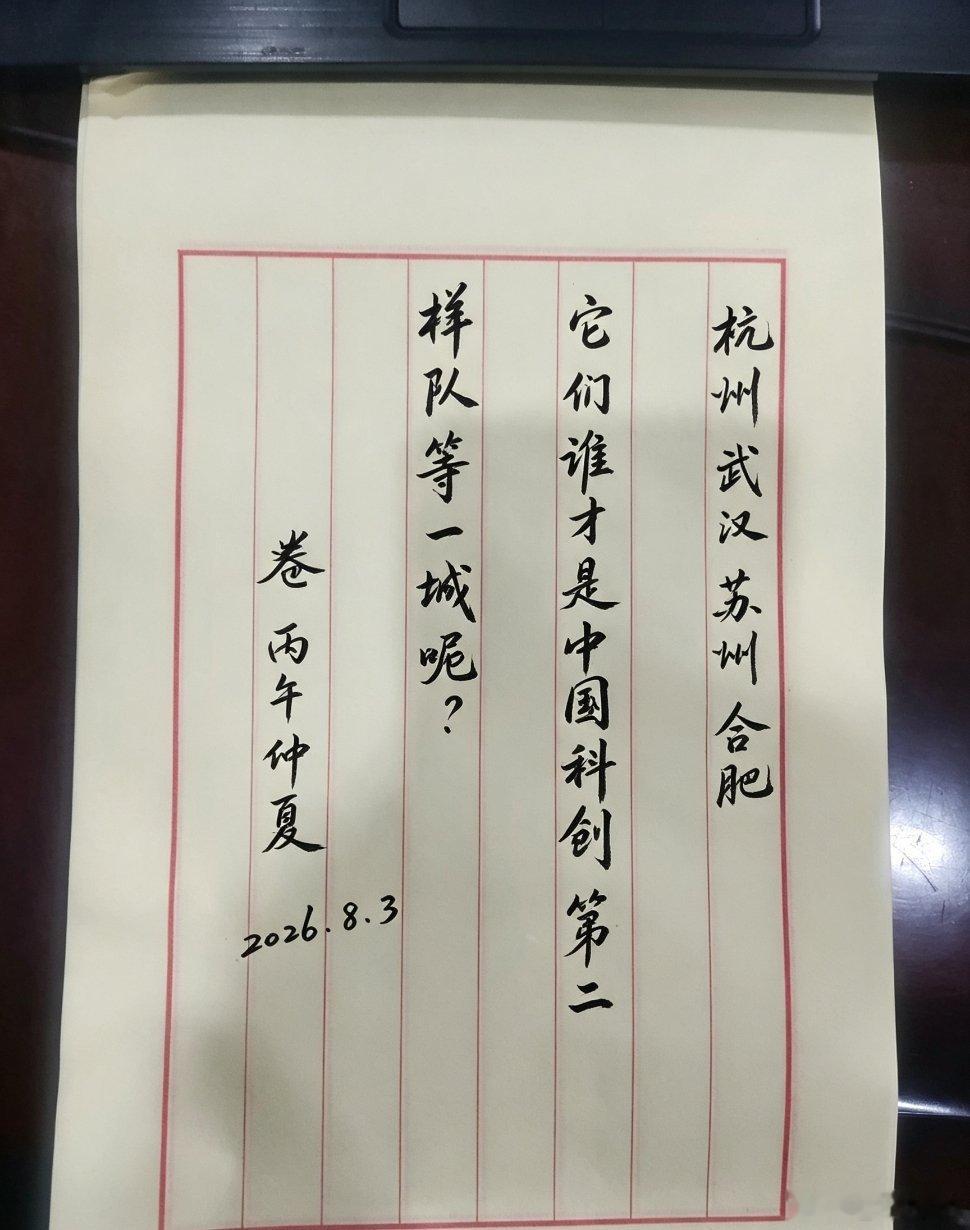 杭州武汉苏州合肥
它们谁才是中国科创第二
样队等一城呢？
卷 丙午仲夏
2026.8.3